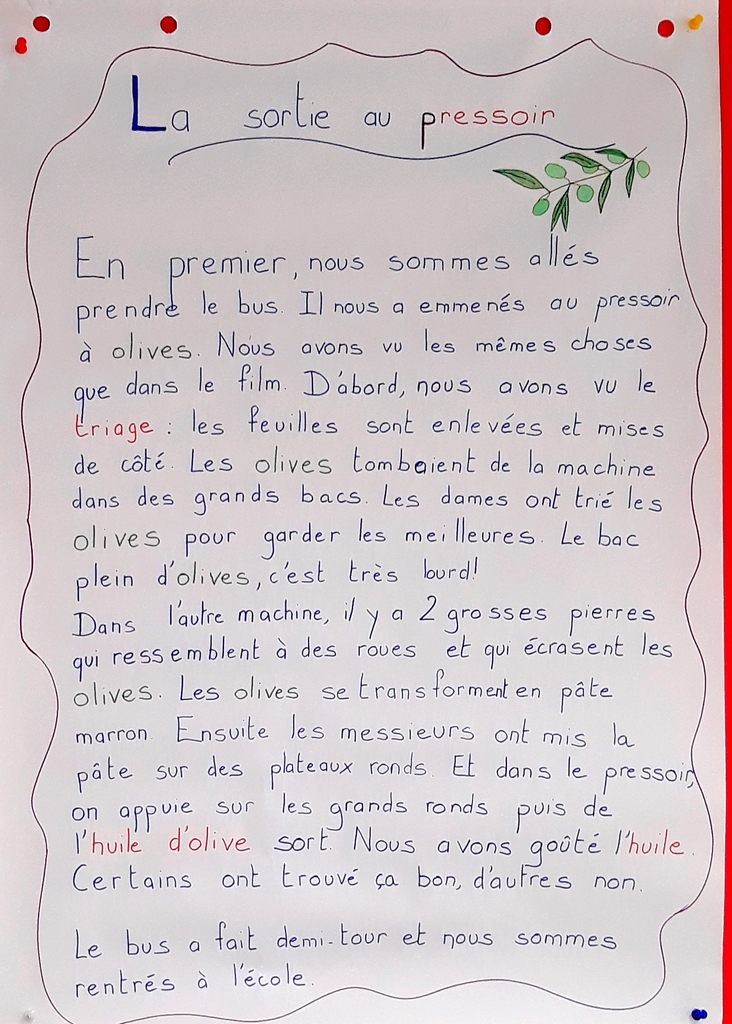 La sortie au pressoir
En premier, nous sommes allés
prendre le bus. Il nous a emmenés au pressoir
à olives. Nous avons vu les mêmes choses
que dans le film. D'abord, nous avons vu le
triage : les feuilles sont enlevées et mises
de côté. Les olives tombaient de la machine
dans des grands bacs. Les dames ont trié les
olives pour garder les meilleures. Le bac
plein d'olives, c'est très lourd!
Dans l'autre machine, il y a 2 grosses pierres
qui ressemblent à des roues et qui écrasent les
olives. Les olives se transforment en pâte
marron. Ensuite les messieurs ont mis la
pâte sur des plateaux ronds. Et dans le pressoir,
on appuie sur les grands ronds puis de
l'huile d'olive sort. Nous avons goûté l'huile.
Certains ont trouvé ça bon, d'autres non.
Le bus a fait demi-tour et nous sommes
rentrés à l'école.